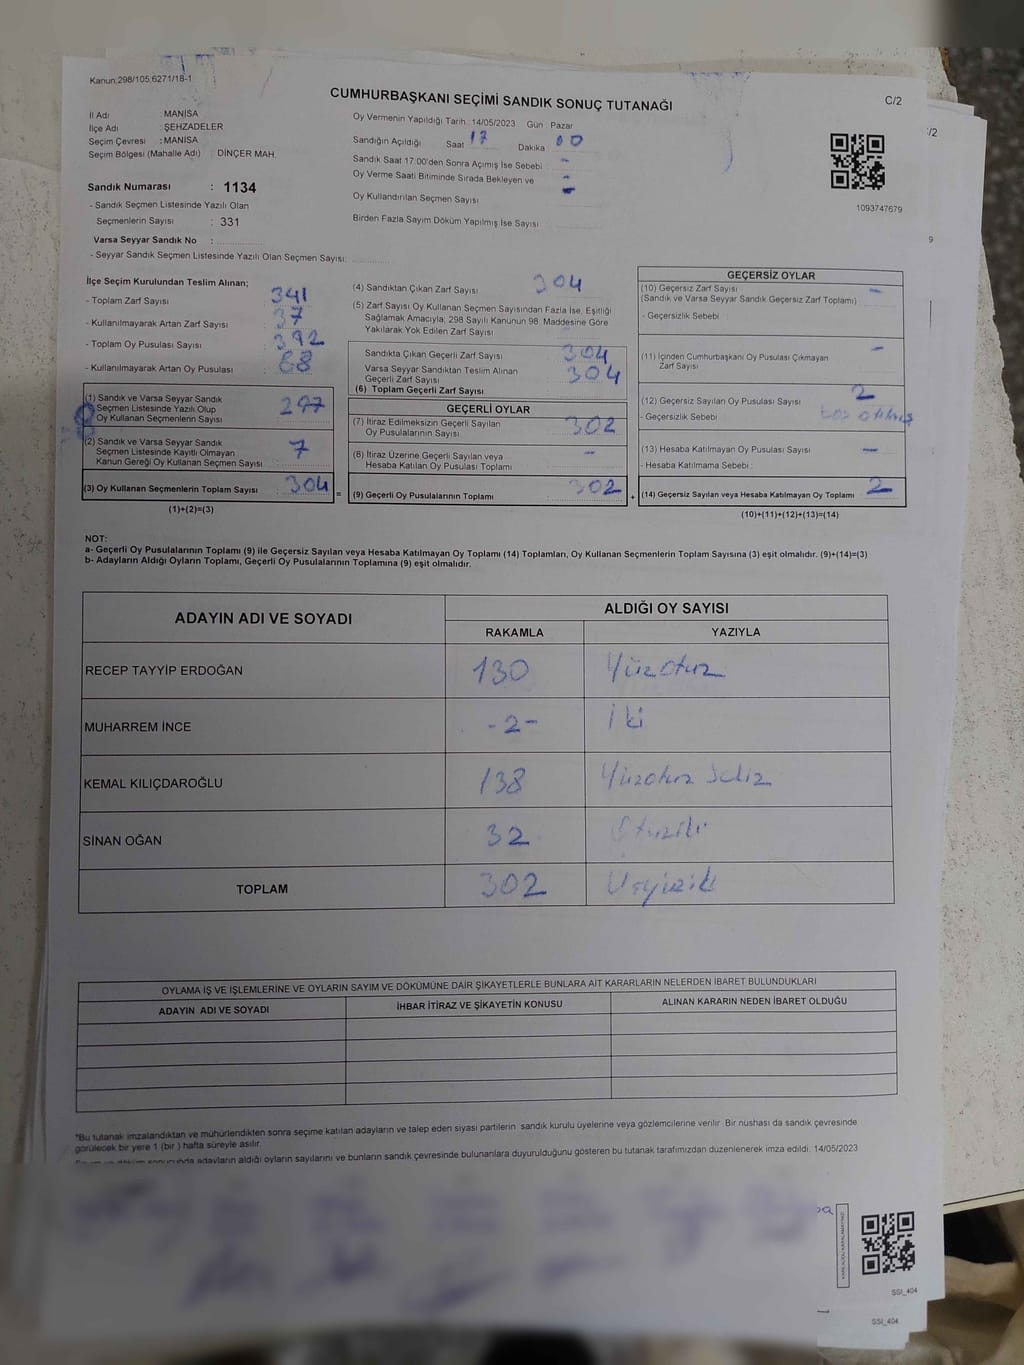 Kanun.298/105.6271/18-1
CUMHURBAŞKANI SEÇİMİ SANDIK SONUÇ TUTANAĞI
C/2
/2
İl Adı : MANİSA
İlçe Adı : ŞEHZADELER
Seçim Çevresi : MANİSA
Seçim Bölgesi (Mahalle Adı) : DİNÇER MAH.
Sandık Numarası : 1134
- Sandık Seçmen Listesinde Yazılı Olan
Seçmenlerin Sayısı : 331
Varsa Seyyar Sandık No :
- Seyyar Sandık Seçmen Listesinde Yazılı Olan Seçmen Sayısı:
Oy Vermenin Yapıldığı Tarih : 14/05/2023 Gün : Pazar
Sandığın Açıldığı Saat 17 Dakika 00
Sandık Saat 17:00'den Sonra Açımış İse Sebebi : -
Oy Verme Saati Bitiminde Sırada Bekleyen ve -
Oy Kullandırılan Seçmen Sayısı -
Birden Fazla Sayım Döküm Yapılmış İse Sayısı
1093747679
9
İlçe Seçim Kurulundan Teslim Alınan;
- Toplam Zarf Sayısı : 341
- Kullanılmayarak Artan Zarf Sayısı : 37
- Toplam Oy Pusulası Sayısı : 392
- Kullanılmayarak Artan Oy Pusulası : 88
(1) Sandık ve Varsa Seyyar Sandık
Seçmen Listesinde Yazılı Olup
Oy Kullanan Seçmenlerin Sayısı : 297
(2) Sandık ve Varsa Seyyar Sandık
Seçmen Listesinde Kayıtlı Olmayan
Kanun Gereği Oy Kullanan Seçmen Sayısı : 7
(3) Oy Kullanan Seçmenlerin Toplam Sayısı : 304
(1)+(2)=(3)
(4) Sandıktan Çıkan Zarf Sayısı : 304
(5) Zarf Sayısı Oy Kullanan Seçmen Sayısından Fazla İse, Eşitliği
Sağlamak Amacıyla; 298 Sayılı Kanunun 98. Maddesine Göre
Yakılarak Yok Edilen Zarf Sayısı
Sandıkta Çıkan Geçerli Zarf Sayısı : 304
Varsa Seyyar Sandıktan Teslim Alınan
Geçerli Zarf Sayısı : 304
(6) Toplam Geçerli Zarf Sayısı
GEÇERLİ OYLAR
(7) İtiraz Edilmeksizin Geçerli Sayılan
Oy Pusulalarının Sayısı : 302
(8) İtiraz Üzerine Geçerli Sayılan veya
Hesaba Katılan Oy Pusulası Toplamı : -
= (9) Geçerli Oy Pusulalarının Toplamı : 302
GEÇERSİZ OYLAR
(10) Geçersiz Zarf Sayısı : -
(Sandık ve Varsa Seyyar Sandık Geçersiz Zarf Toplamı)
- Geçersizlik Sebebi :
(11) İçinden Cumhurbaşkanı Oy Pusulası Çıkmayan
Zarf Sayısı : -
(12) Geçersiz Sayılan Oy Pusulası Sayısı : 2
- Geçersizlik Sebebi :
(13) Hesaba Katılmayan Oy Pusulası Sayısı : -
- Hesaba Katılmama Sebebi :
+ (14) Geçersiz Sayılan veya Hesaba Katılmayan Oy Toplamı : 2
(10)+(11)+(12)+(13)=(14)
NOT:
a- Geçerli Oy Pusulalarının Toplamı (9) ile Geçersiz Sayılan veya Hesaba Katılmayan Oy Toplamı (14) Toplamları, Oy Kullanan Seçmenlerin Toplam Sayısına (3) eşit olmalıdır. (9)+(14)=(3)
b- Adayların Aldığı Oyların Toplamı, Geçerli Oy Pusulalarının Toplamına (9) eşit olmalıdır.
ADAYIN ADI VE SOYADI ALDIĞI OY SAYISI
RAKAMLA YAZIYLA
RECEP TAYYİP ERDOĞAN 130 Yüzotuz
MUHARREM İNCE -2- İki
KEMAL KILIÇDAROĞLU 138 Yüzotuz Sekiz
SİNAN OĞAN 32 Otuziki
TOPLAM 302 Üçyüziki
OYLAMA İŞ VE İŞLEMLERİNE VE OYLARIN SAYIM VE DÖKÜMÜNE DAİR ŞİKAYETLERLE BUNLARA AİT KARARLARIN NELERDEN İBARET BULUNDUKLARI
ADAYIN ADI VE SOYADI İHBAR İTİRAZ VE ŞİKAYETİN KONUSU ALINAN KARARIN NEDEN İBARET OLDUĞU
*Bu tutanak imzalandıktan ve mühürlendikten sonra seçime katılan adayların ve talep eden siyasi partilerin sandık kurulu üyelerine veya gözlemcilerine verilir. Bir nüshası da sandık çevresinde
görülecek bir yere 1 (bir) hafta süreyle asılır.
sonucunda adayların aldığı oyların sayılarını ve bunların sandık çevresinde bulunanlara duyurulduğunu gösteren bu tutanak tarafımızdan düzenlenerek imza edildi. 14/05/2023
SSI_404
SSI_404